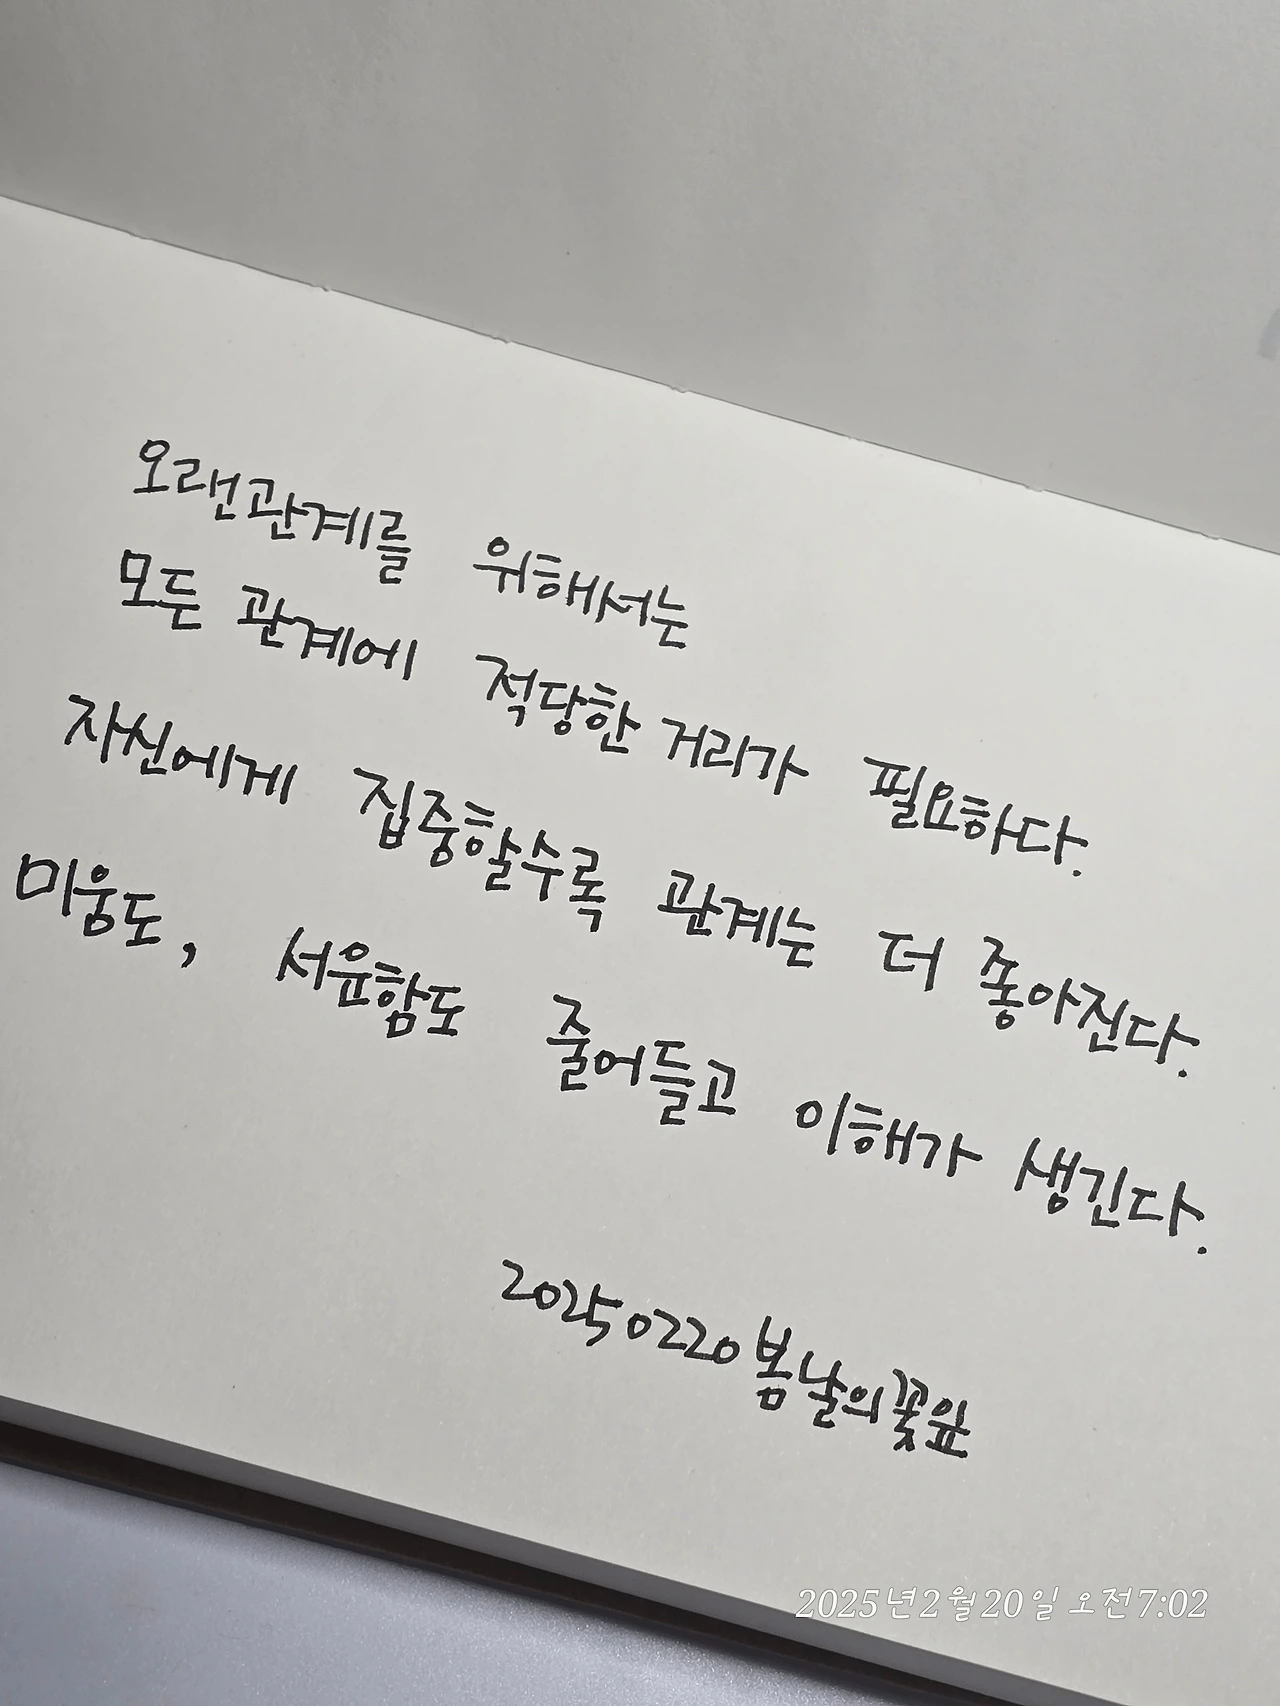 오랜관계를 위해서는
모든 관계에 적당한 거리가 필요하다.
자신에게 집중할수록 관계는 더 좋아진다.
미웅도, 서운함도 줄어들고 이해가 생긴다.
20250220 봄날의꽃잎
2025년2월20일 오전7:02